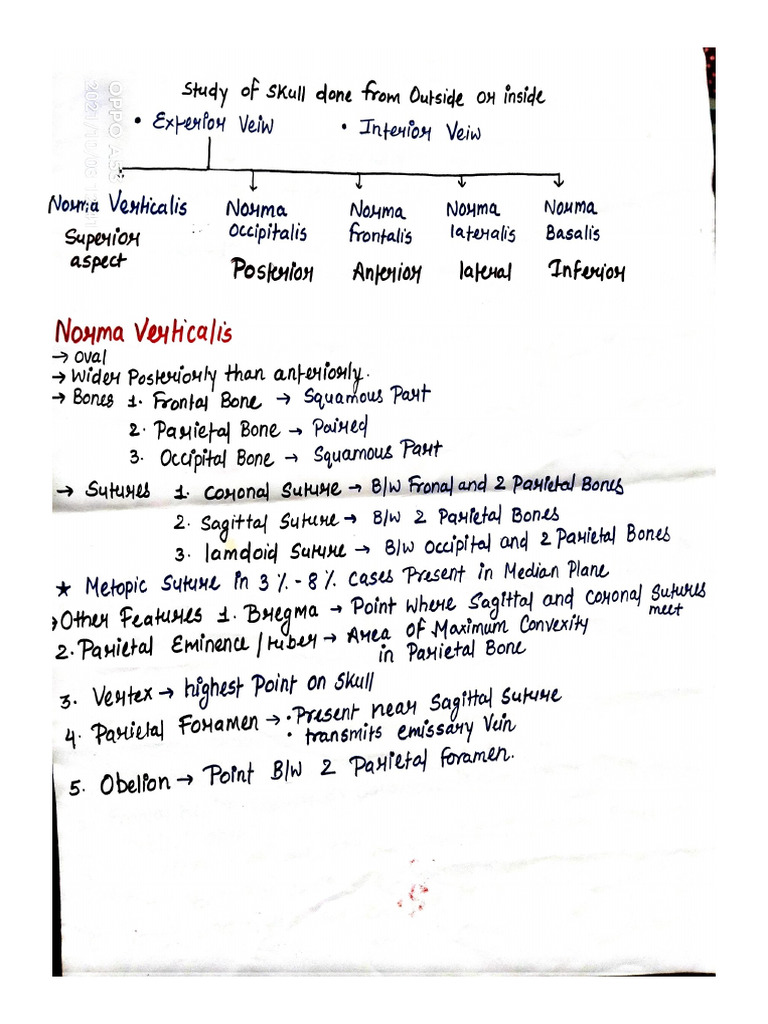 Study of Skull done from Outside or inside
• Exterior Veiw • Interior Veiw
Norma Verticalis Norma Occipitalis Norma frontalis Norma lateralis Norma Basalis
Superior aspect Posterior Anterior lateral Inferior
Norma Verticalis
→ Oval
→ Wider Posteriorly than anteriorly.
→ Bones 1. Frontal Bone → Squamous Part
2. Parietal Bone → Paired
3. Occipital Bone → Squamous Part
→ Sutures 1. Coronal Suture → B/W Fronal and 2 Parietal Bones
2. Sagittal Suture → B/W 2 Parietal Bones
3. lamdoid Suture → B/W Occipital and 2 Parietal Bones
★ Metopic Suture in 3 % - 8 % cases Present in Median Plane
→ Other Features 1. Bregma → Point where Sagittal and coronal Sutures meet
2. Parietal Eminence / tuber → Area of Maximum Convexity
in Parietal Bone
3. Vertex → highest Point on Skull
4. Parietal Foramen → • Present near Sagittal Suture
• transmits emissary Vein
5. Obelion → Point B/W 2 Parietal foramen.
OPPO A53